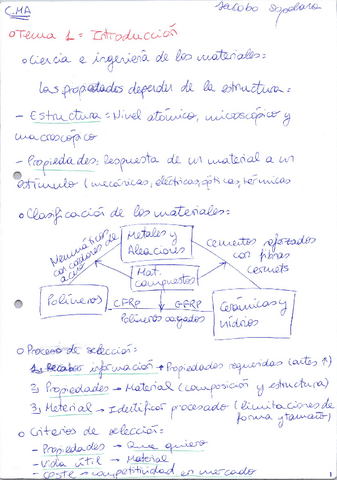 CMA
Jacobo Sepulcro
Tema 1: Introducción
Ciencia e ingenieria de los materiales:
Las propiedades depender de la estructura:
- Estructura = Nivel atómico, microscópico y
macroscópico
- Propiedades: respuesta de un material a un
estímulo (mecánicas, eléctricas, ópticas, térmicas
Clasificación de los materiales:
Neumáticos
con cordones de
acero
Metales y
Aleaciones
cementos reforzados
con fibras
cermets
Mat.
compuestos
Polímeros
CFRP
GFRP
Polímeros cargados
Cerámicas y
vidrios
Proceso de selección:
1) Recabar información → Propiedades requeridas (antes ↑)
3) Propiedades → Material (composición y estructura)
3) Material → Identificar procesado (limitaciones de
forma y tamaño)
Criterios de selección:
- Propiedades → Que quiero
- Vida útil → Material
- Coste → competitividad en mercado
1